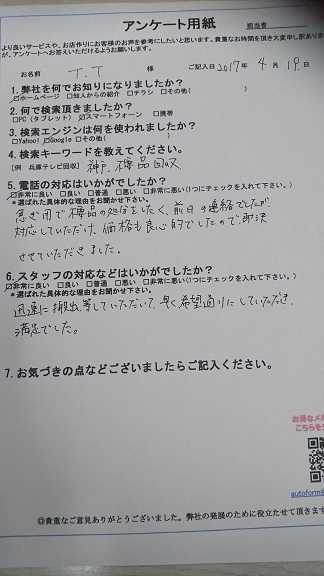 アンケート用紙
担当者
より良いサービスや、お店作りにお客様のお声を参考にしたいと思います。貴重なお時間を頂き大変申し訳ありま
が、アンケートへお答えいただけるようお願いします。
お名前 T.T 様 ご記入日 2017年 4月 19日
1. 弊社を何でお知りになりましたか?
☑ホームページ □知人からの紹介 □チラシ □その他( )
2. 何で検索頂きましたか?
□PC(タブレット) ☑スマートフォーン □携帯
3. 検索エンジンは何を使われましたか?
□Yahoo! ☑Google □その他( )
4. 検索キーワードを教えてください。
[例 兵庫テレビ回収] 神戸 不用品回収
5. 電話の対応はいかがでしたか?
☑非常に良い □良い □普通 □悪い □非常に悪い(1つにチェックを入れて下さい。)
*選ばれた具体的な理由をお聞かせ下さい。
急ぎ用で不用品の処分をしたく、前日の連絡でしたが
対応していただけ、価格も良心的でしたので、即決
させていただきました。
6. スタッフの対応などはいかがでしたか?
☑非常に良い □良い □普通 □悪い □非常に悪い(1つにチェックを入れて下さい。)
*選ばれた具体的な理由をお聞かせ下さい。
迅速に搬出等していただいて、早く希望通りにしていただき、
満足でした。
7. お気づきの点などございましたらご記入ください。
お得なメ
こちらを
autoform@
◎貴重なご意見ありがとうございました。弊社の発展のために役立たせて頂きます